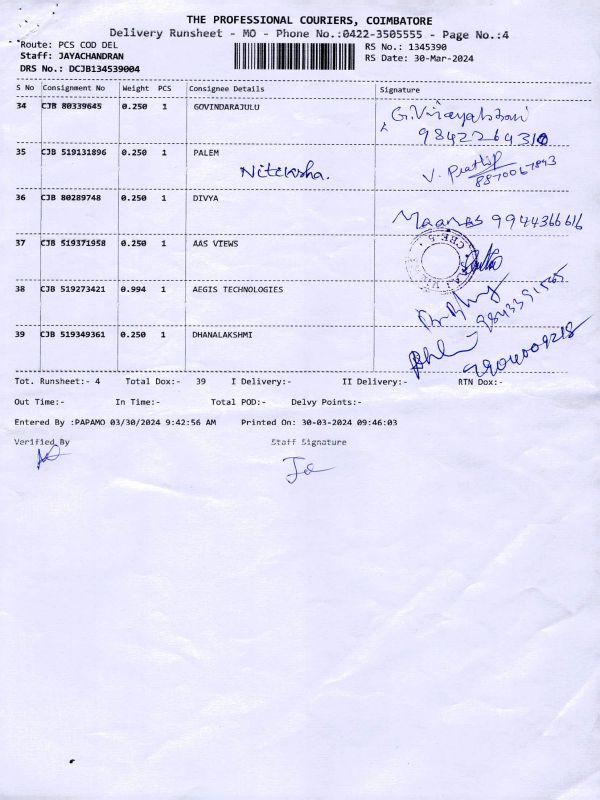 THE PROFESSIONAL COURIERS, COIMBATORE
Delivery Runsheet - MO - Phone No.:0422-3505555 - Page No.:4
Route: PCS COD DEL
RS No.: 1345390
Staff: JAYACHANDRAN
RS Date: 30-Mar-2024
DRS No.: DCJB134539004
S No Consignment No Weight PCS Consignee Details Signature
34 CJB 80339645 0.250 1 GOVINDARAJULU
9842264310
35 CJB 519131896 0.250 1 PALEM
8870067893
36 CJB 80289748 0.250 1 DIVYA
9944366616
37 CJB 519371958 0.250 1 AAS VIEWS
38 CJB 519273421 0.994 1 AEGIS TECHNOLOGIES
39 CJB 519349361 0.250 1 DHANALAKSHMI
Tot. Runsheet:- 4 Total Dox:- 39 I Delivery:- II Delivery:- RTN Dox:-
Out Time:- In Time:- Total POD:- Delvy Points:-
Entered By :PAPAMO 03/30/2024 9:42:56 AM Printed On: 30-03-2024 09:46:03
Verified By Staff Signature